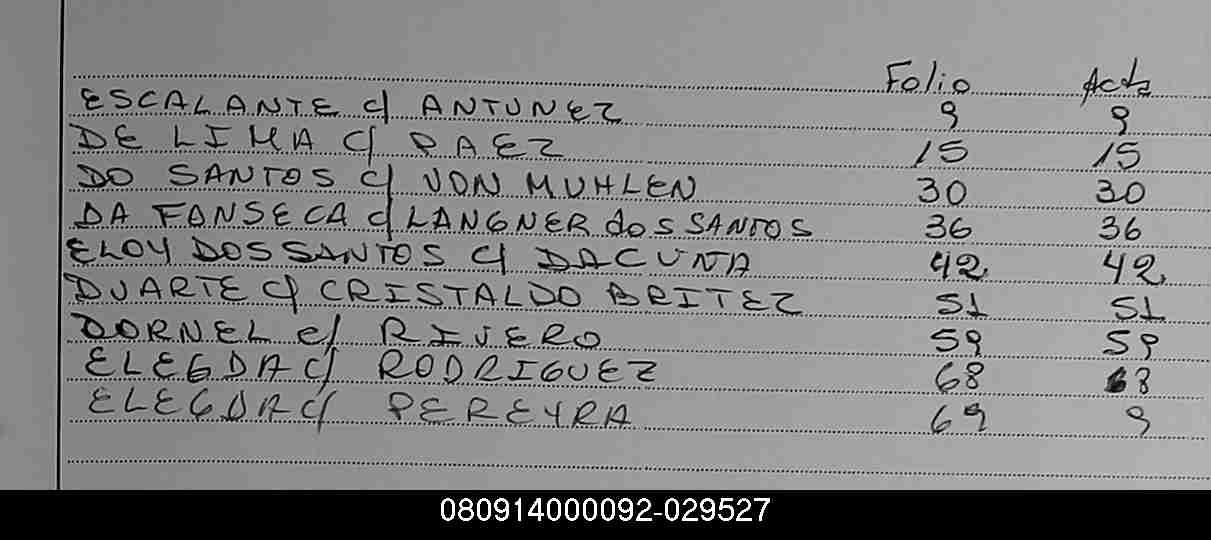 Folio Acta
ESCALANTE c/ ANTUNEZ 9 9
DE LIMA c/ PAEZ 15 15
DO SANTOS c/ VON MUHLEN 30 30
DA FONSECA c/ LANGNER dos SANTOS 36 36
ELOY DOS SANTOS c/ DACUNA 42 42
DUARTE c/ CRISTALDO BRITEZ 51 51
DORNEL c/ RIVERO 59 59
ELEGDA c/ RODRIGUEZ 68 68
ELEGDA c/ PEREYRA 69 9
080914000092-029527